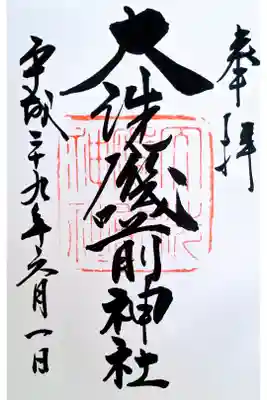 奉拝
大洗磯前神社
平成二十九年六月一日